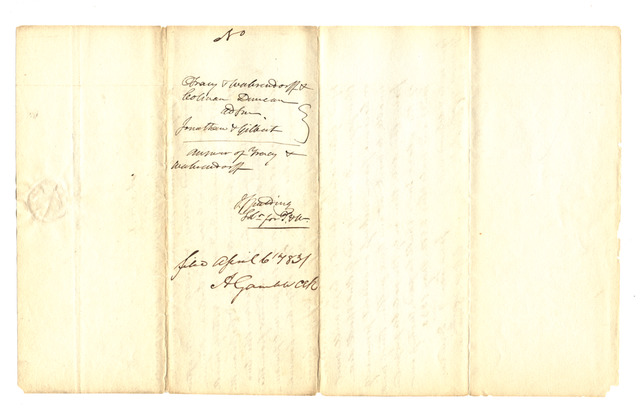 No
Tracy & Wahrendorff &
Colman Duncan
adsm
Jonathan & Gilbert
Answer of Tracy &
Wahrendorff
Spalding
Sol. for T & W
filed April 6th 1831
A Gamble Clk